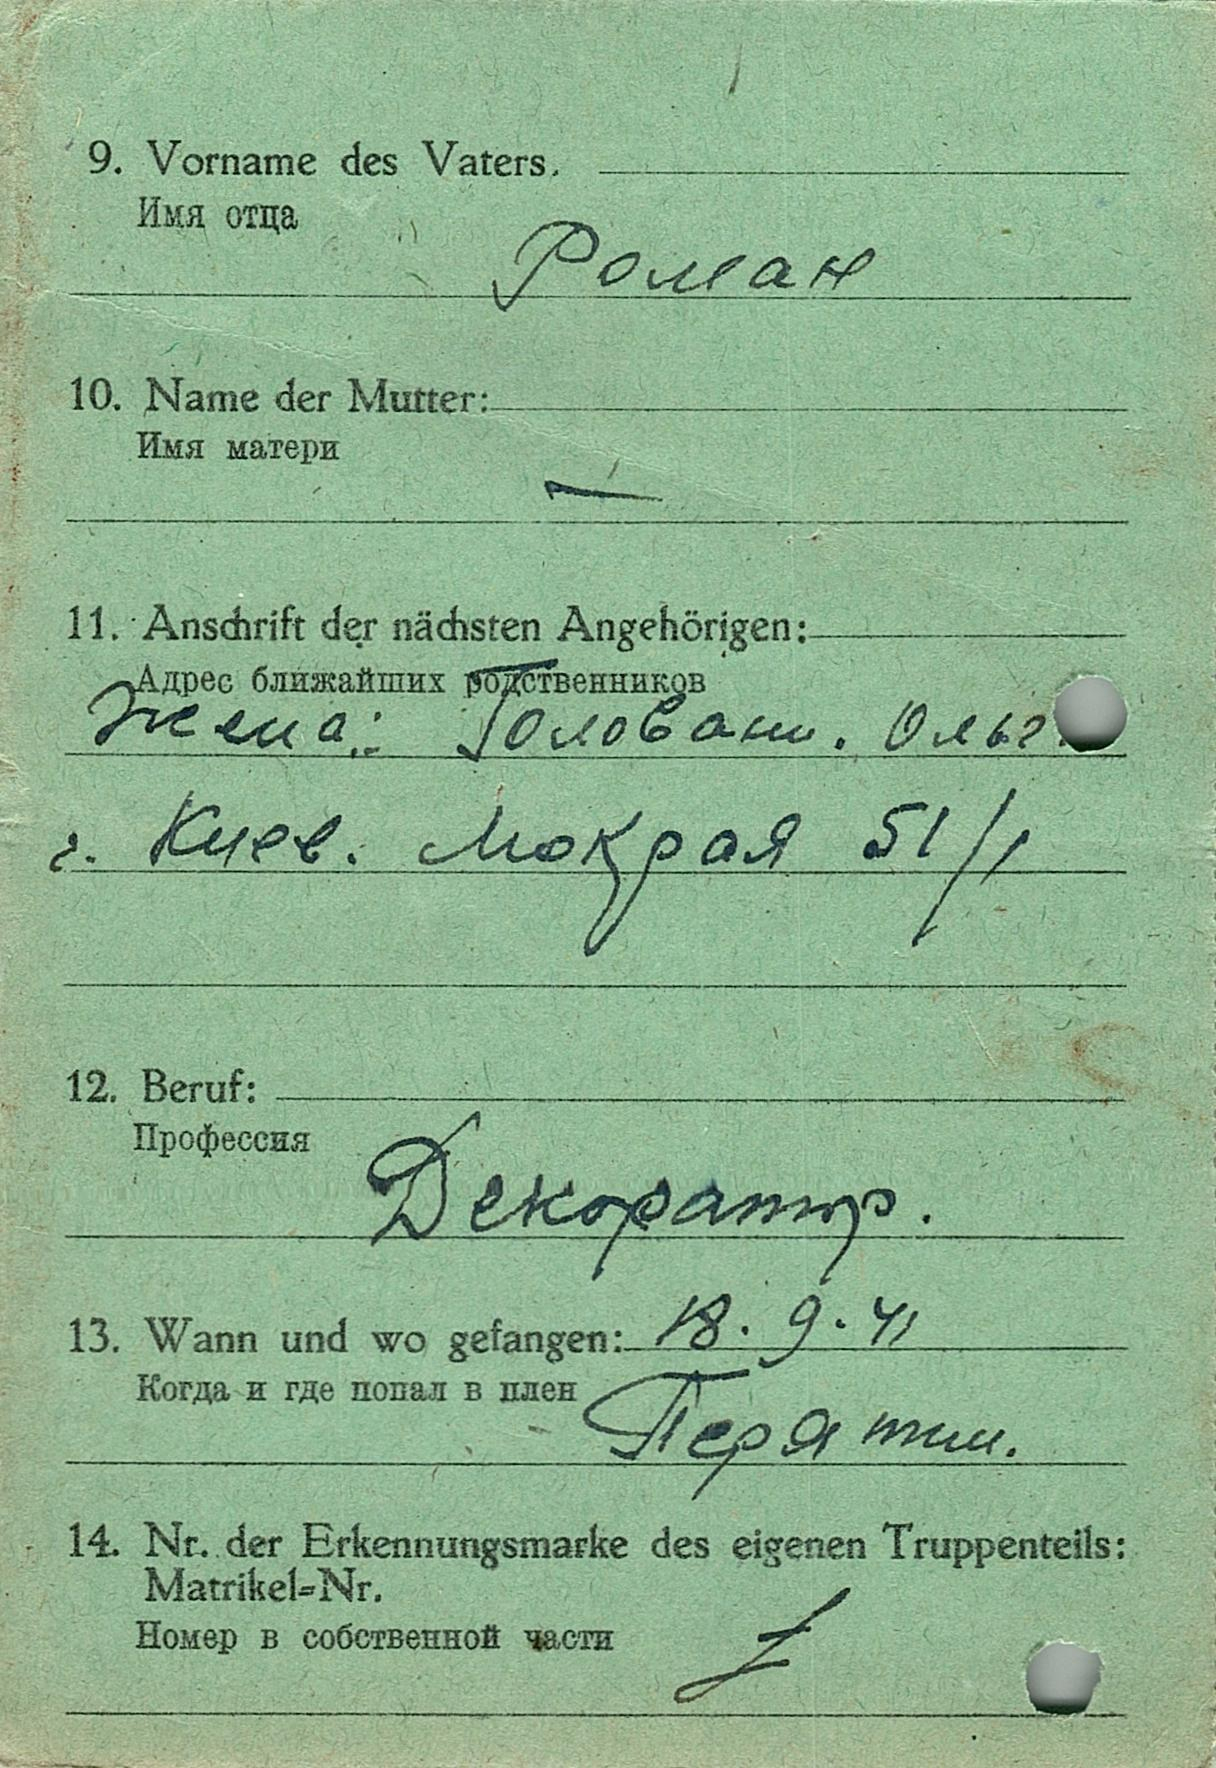 9. Vorname des Vaters.
Имя отца
Роман
10. Name der Mutter:
Имя матери
—
11. Anschrift der nächsten Angehörigen:
Адрес ближайших родственников
Жена: Головань. Ольг
г. Киев. Мокрая 51/1
12. Beruf:
Профессия
Декоратор.
13. Wann und wo gefangen: 18.9.41
Когда и где попал в плен
Перятин.
14. Nr. der Erkennungsmarke des eigenen Truppenteils:
Matrikel=Nr.
Номер в собственной части